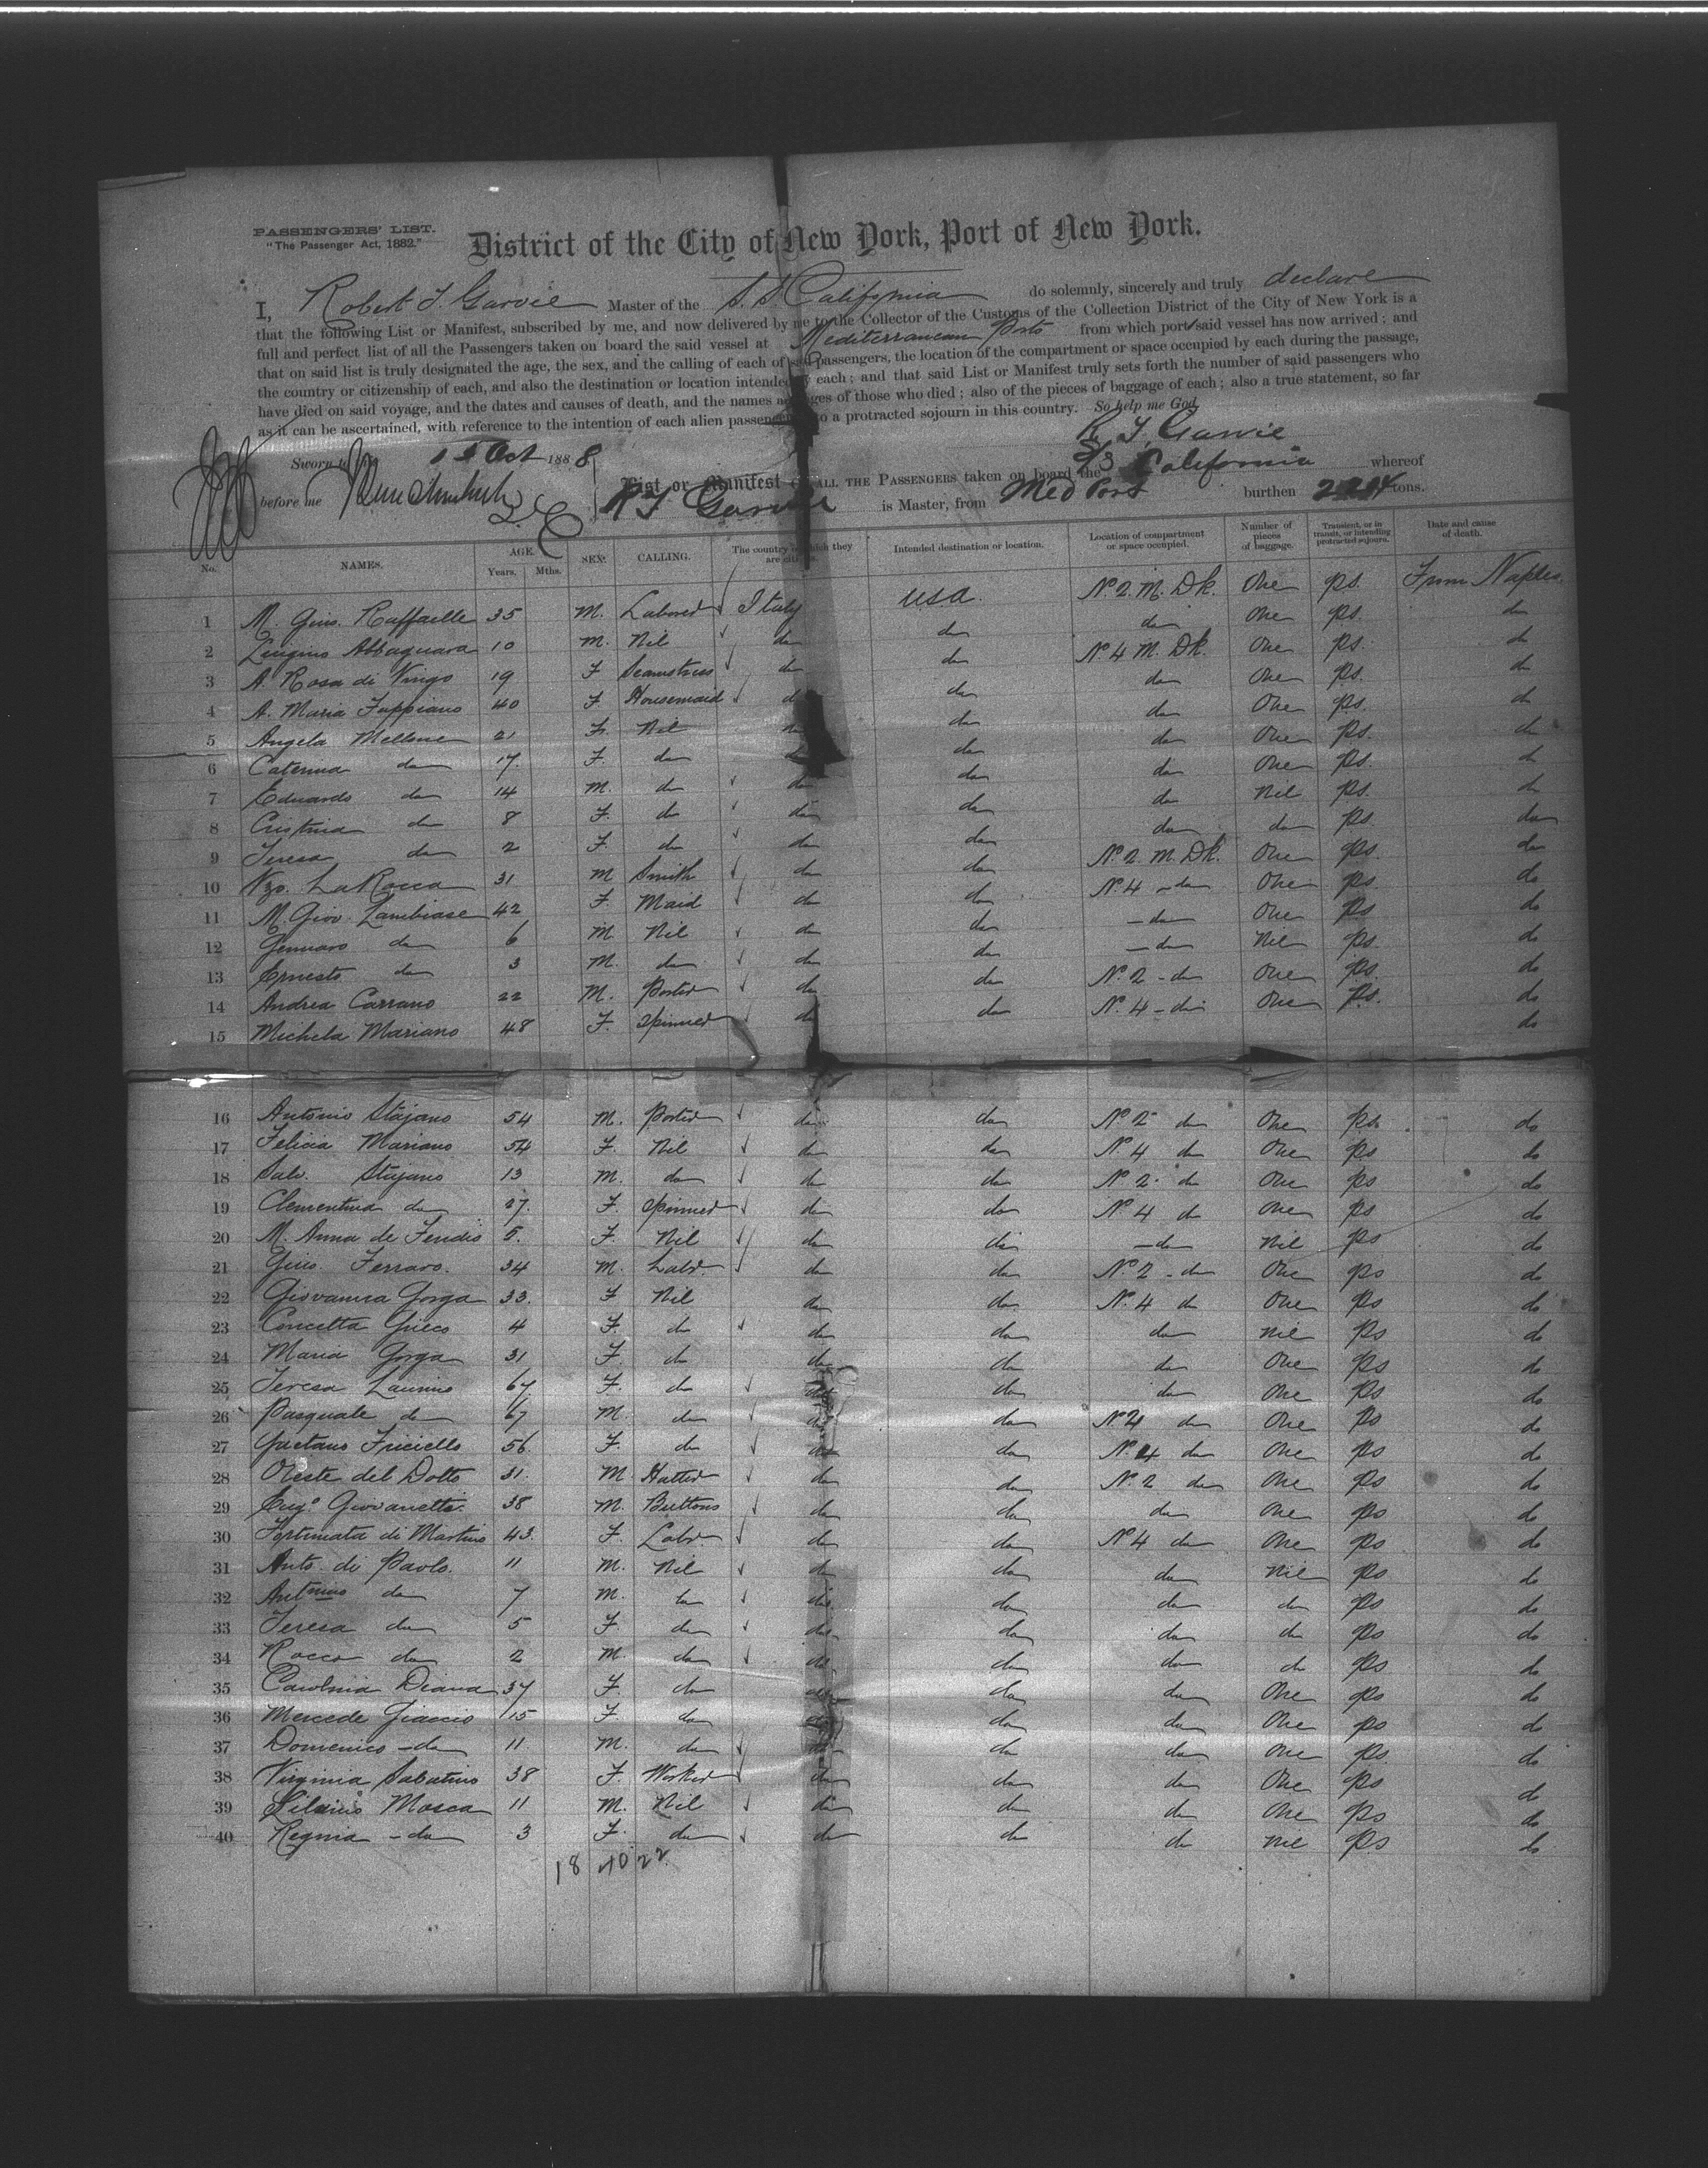 PASSENGERS' LIST.
"The Passenger Act, 1882."
District of the City of New York, Port of New York.
I, Robert J. Garvie Master of the S. S California do solemnly, sincerely and truly declare
that the following List or Manifest, subscribed by me, and now delivered by me to the Collector of the Customs of the Collection District of the City of New York is a
full and perfect list of all the Passengers taken on board the said vessel at Mediterranean Ports from which port said vessel has now arrived; and
that on said list is truly designated the age, the sex, and the calling of each of said passengers, the location of the compartment or space occupied by each during the passage,
the country or citizenship of each, and also the destination or location intended by each; and that said List or Manifest truly sets forth the number of said passengers who
have died on said voyage, and the dates and causes of death, and the names and ages of those who died; also of the pieces of baggage of each; also a true statement, so far
as it can be ascertained, with reference to the intention of each alien passenger to a protracted sojourn in this country. So help me God
R J Garvie
Sworn to 15 Oct 1888
before me
List or Manifest OF ALL THE PASSENGERS taken on board the S/S California whereof
R J Garvie is Master, from Med Ports burthen tons.
No. NAMES. AGE. Years. Mths. SEX. CALLING. The country of which they are citizens. Intended destination or location. Location of compartment or space occupied. Number of pieces of baggage. Transient, or in transit, or intending protracted sojourn. Date and cause of death.
1 M. Gius. Raffaelle 35 M. Laborer Italy USA. No. 2 M. Dk. One ps. From Naples
2 Luigino Abbaguara 10 M. Nil do do do One ps. do
3 A. Rosa di Vingo 19 F Seamstress do do No. 4 M. Dk. One ps. do
4 A. Maria Fappiano 40 F Housemaid do do do One ps. do
5 Angela Mellone 21 F. Nil do do do One ps. do
6 Caterina do 17 F. do do do do One ps. do
7 Eduardo do 14 M. do do do do One ps. do
8 Cristina do 8 F. do do do do Nil ps. do
9 Teresa do 2 F. do do do do do ps do
10 Vzo. LaRocca 31 M Smith do do No. 2 M. Dk. One ps. do
11 M. Giov. Lambiase 42 F. Maid do do No. 4 - do One ps do
12 Gennaro do 6 M. Nil do do - do One ps do
13 Ernesto do 3 M. do do do - do Nil ps. do
14 Andrea Carrano 22 M. Porter do do No. 2 - do One ps. do
15 Michela Mariano 48 F. Spinner do do No. 4 - do One ps. do
16 Antonio Stajano 54 M. Porter do do No. 2 do One ps. do
17 Felicia Mariano 54 F. Nil do do No. 4 do One ps do
18 Salv. Stajano 13 M. do do do No. 2 do One ps do
19 Clementina do 27. F. Spinner do do No. 4 do One ps do
20 M. Anna de 5. F. Nil do do - do Nil ps do
21 Gius. Ferraro. 34 M. Labr. do do No. 2 - do One ps do
22 Giovanna Gorga 33. F Nil do do No. 4 do One ps do
23 Concetta Grieco 4 F. do do do do Nil ps do
24 Maria Gorga 31 F. do do do do One ps do
25 Teresa Laurino 67 F. do do do do One ps do
26 Pasquale do 67 M. do do do No. do One ps do
27 Gaetano Friciello 56. F. do do do No. 4 do One ps do
28 Oreste del Dotto 31. M. Hatter do do No. 2 do One ps do
29 Eugo Giovanetti. 38 M. Buttons do do do One ps do
30 Fortunata di Martino 43. F. Labr. do do No. 4 do One ps do
31 Anto. di Paolo. 11 M. Nil do do do Nil ps do
32 Antonio do 7 M. do do do do do ps do
33 Teresa do 5 F. do do do do do ps do
34 Rocco do 2 M. do do do do do ps do
35 Carolina Diana 37 F. do do do do One ps do
36 Mercede Giaccio 15 F. do do do do One ps do
37 Domenico - do 11 M. do do do do One ps do
38 Virginia Sabatino 38 F. Worker do do do One ps do
39 Silvino Mosca 11 M. Nil do do do One ps do
40 Regina - do 3 F. do do do do Nil ps do
18 40 22